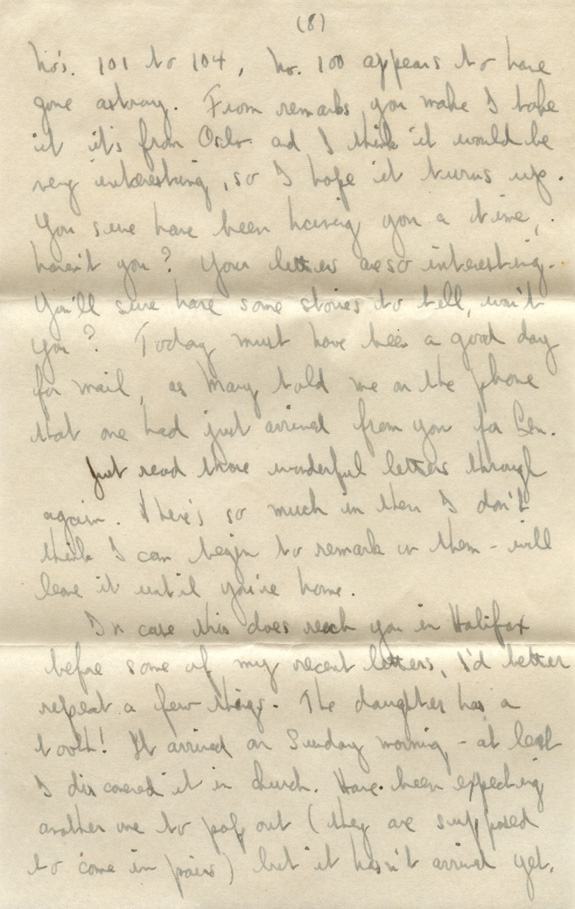 (8)
No's. 101 to 104, No. 100 appears to have
gone astray. From remarks you make I take
it it's from Oslo and I think it would be
very interesting, so I hope it turns up.
You sure have been having you a time,
haven't you? Your letters are so interesting.
You'll sure have some stories to tell, won't
you? Today must have been a good day
for mail, as Mary told me on the phone
that one had just arrived from you for Ben.
Just read those wonderful letters through
again. There's so much in them I don't
think I can begin to remark on them - will
leave it until you're home.
In case this does reach you in Halifax
before some of my recent letters, I'd better
repeat a few things. The daughter has a
tooth! It arrived on Sunday morning - at least
I discovered it in church. Have been expecting
another one to pop out (they are supposed
to come in pairs) but it hasn't arrived yet.